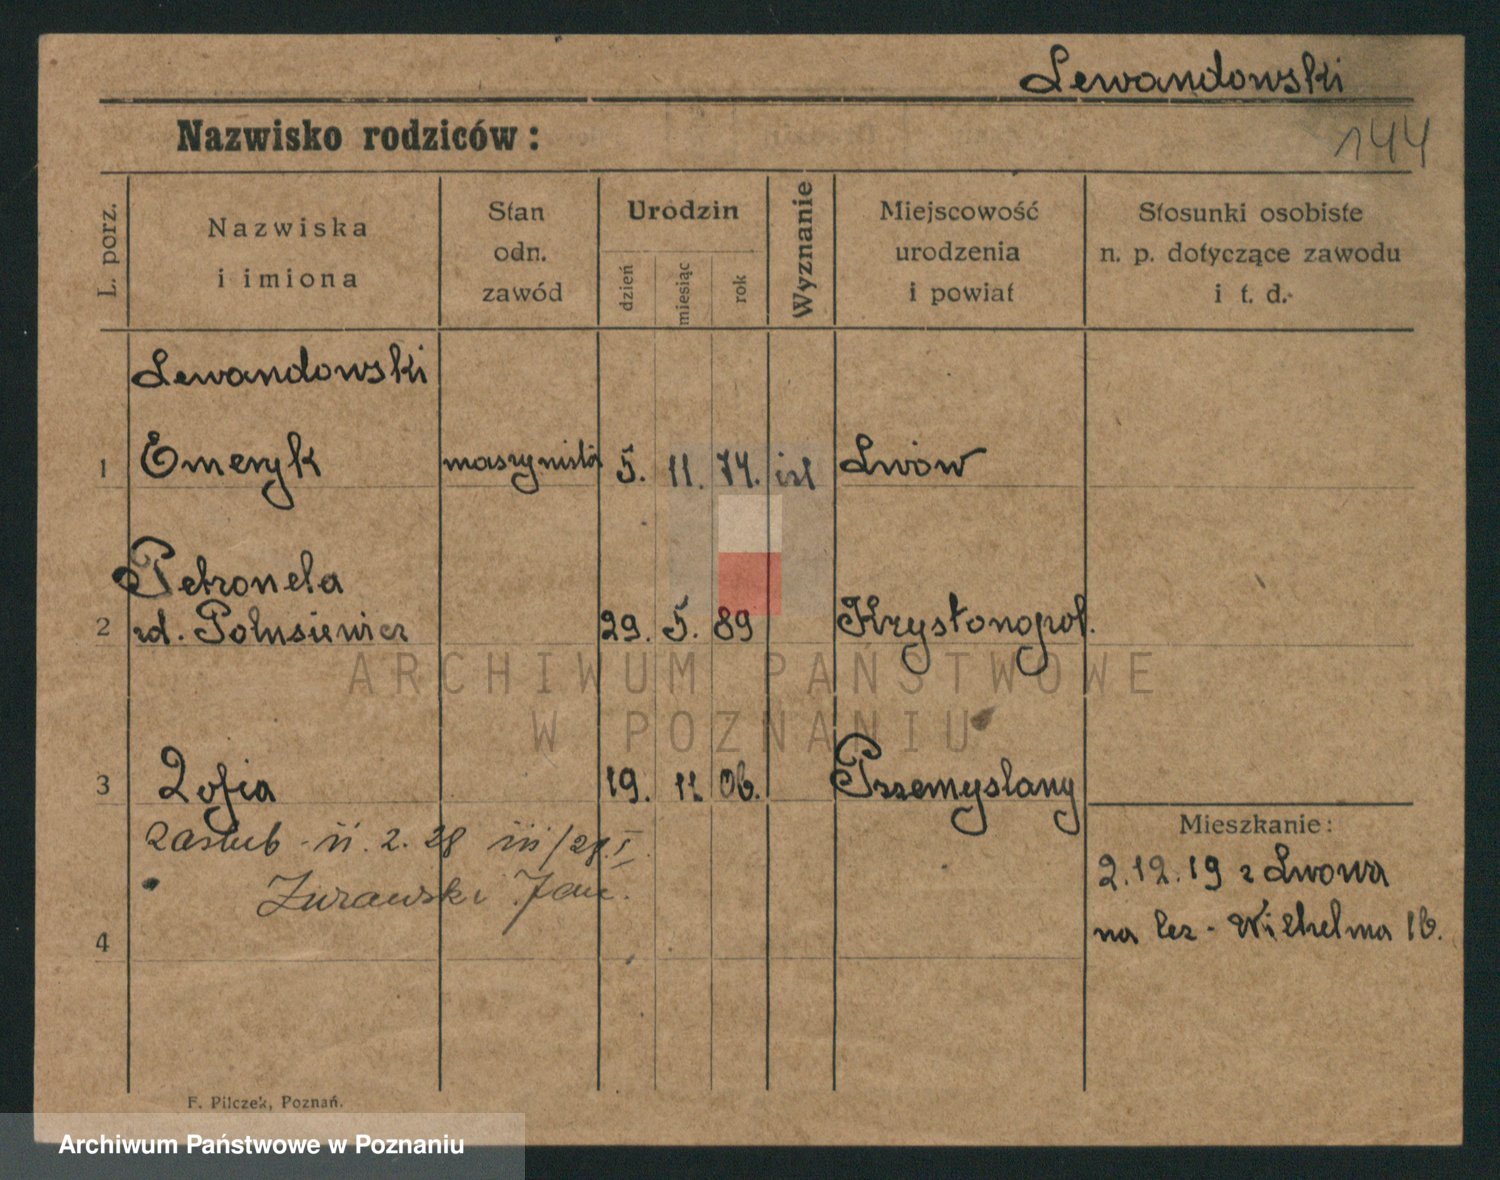 Lewandowski
144
Nazwisko rodziców:
L. porz.
Nazwiska
i imiona
Stan
odn.
zawód
Urodzin
dzień
miesiąc
rok
Wyznanie
Miejscowość
urodzenia
i powiat
Stosunki osobiste
n. p. dotyczące zawodu
i t. d.
Lewandowski
1 Emeryk maszynista 5. 11. 74. Lwów
Petronela
2 29. 5. 89 Krystonopol.
3 Zofia 19. 11. 06. Przemyslany
zaślub 2. 28
Żurawski Jan.
4
Mieszkanie:
2.12.19 z Lwowa
na Wilhelma 16.
F. Pilczek, Poznań.
ARCHIWUM PAŃSTWOWE
W POZNANIU
Archiwum Państwowe w Poznaniu